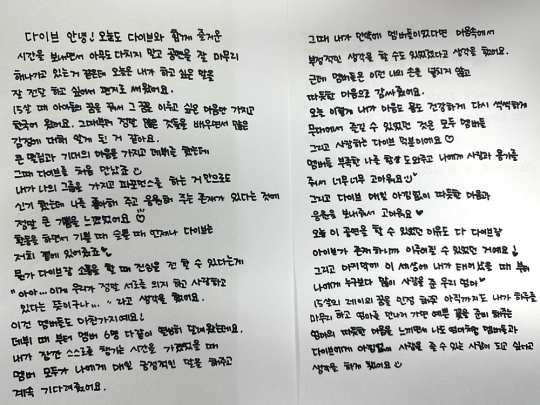 다이브 안녕! 오늘도 다이브와 함께 즐거운
시간을 보내면서 아무도 다치지 말고 공연을 잘 마무리
해나가고 있는거 같은데 오늘은 내가 하고 싶은 말을
잘 전달 하고 싶어서 편지도 써왔어요.
15살 때 아이돌의 꿈을 꾸서 그 꿈을 이루고 싶은 마음만 가지고
한국어 왔어요. 그때부터 정말 많은 것들을 배우면서 많은
감정에 대해 알게 된 거 같아요.
큰 떨림과 기대의 마음을 가지고 데뷔를 했는데
그때 다이브를 처음 만났죠
내가 나의 그룹을 가지고 퍼포먼스를 하는 거 만으로도
신기 했는데 나를 좋아해 주고 응원해 주는 존재가 있다는 것에
정말 큰 기쁨을 느꼈었어요
활동을 하면서 기쁠 때 슬플 때 언제나 다이브는
저희 곁에 있어줬죠♡
뭔가 다이브랑 소통을 할 때 진심을 전 할 수 있다는게
"아아... 이게 우리가 정말 서로를 의지 하고 사랑하고
있다는 뜻이구나..." 라고 생각을 했어요.
이전 멤버들도 마찬가지예요!
데뷔 때 부터 멤버 6명 다같이 열심히 달려왔는데요.
내가 잠깐 스스로를 챙기는 시간을 가졌었을 때
멤버 모두가 나에게 매일 긍정적인 말을 해주고
계속 기다려줬어요.
그때 내가 만약에 멤버들이었다면 마음속에서
부정적인 생각을 할 수도 있었겠다고 생각을 했어요.
근데 멤버들은 이런 나의 손을 놓치지 않고
따뜻한 마음으로 감싸줬어요.
오늘 이렇게 내가 마음도 몸도 건강하게 다시 씩씩하게
무대에서 즐길 수 있었던 것은 모두 멤버들
그리고 사랑하는 다이브 덕분이에요♡
멤버들 부족한 나를 항상 도와주고 나에게 사랑과 용기를
줘서 너무너무 고마워요
그리고 다이브 매일 아낌없이 따뜻한 마음과
응원을 보내줘서 고마워요♥
오늘 이 공연을 할 수 있었던 이유도 다 다이브랑
아이브가 존재하니까 이루어질 수 있었던 거예요
그리고 마지막에 이 세상에 내가 태어났을 때 부터
나에게 누구보다 많이 사랑을 준 우리 엄마♥
15살의 레이의 꿈을 인정 해주고 아직까지도 내가 하루를
마무리 하고 엄마를 만나러 가면 예쁜 꽃을 준비 해주는
엄마의 따뜻한 마음을 느끼면서 나도 엄마처럼 멤버들과
다이브에게 아낌없이 사랑을 줄 수 있는 사람이 되고 싶다고
생각을 하게 됐어요